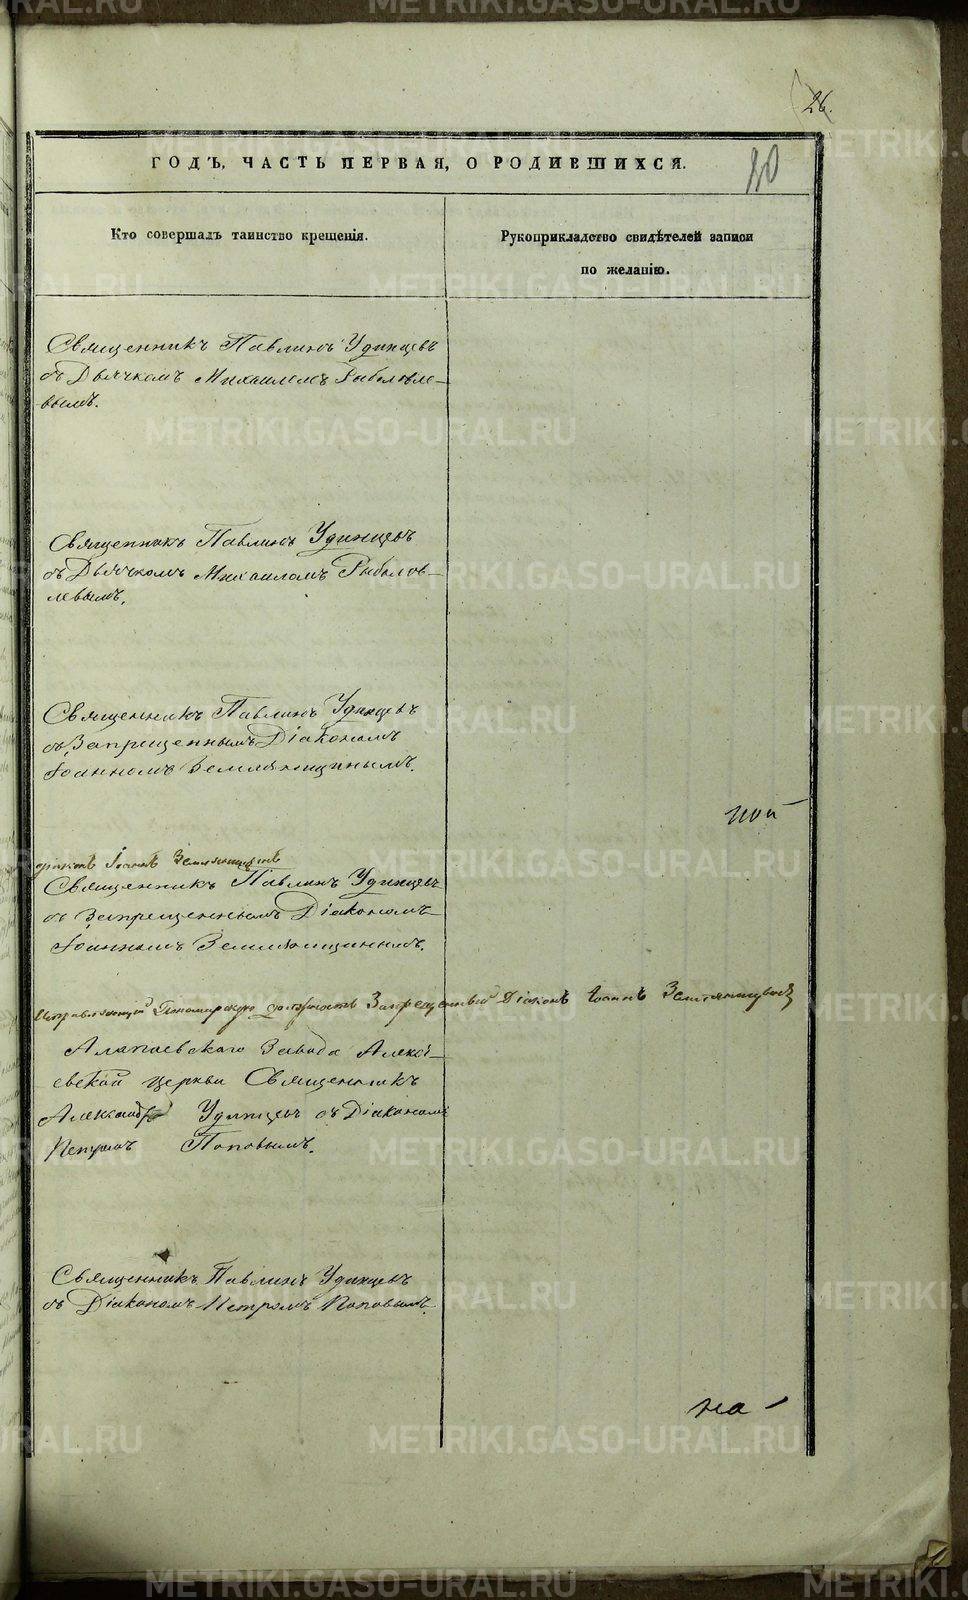 26.
ГОДЪ, ЧАСТЬ ПЕРВАЯ, О РОДИВШИХСЯ.
Кто совершалъ таинство крещенія.
Рукоприкладство свидѣтелей записи
по желанію.
Священникъ Павлинъ Удинцевъ
съ Дьячкомъ Михаиломъ Рыболовле-
вымъ.
Священникъ Павлинъ Удинцевъ
съ Дьячкомъ Михаиломъ Рыболов-
левымъ.
Священникъ Павлинъ Удинцевъ
съ Запрещеннымъ Діакономъ
Іоанномъ Земляницинымъ.
ной
Іоаннъ Земляницынъ
Священникъ Павлинъ Удинцевъ
съ Запрещеннымъ Діакономъ
Іоанномъ Земляницинымъ.
Исправляющій Пономарскую должность Запрещенный Діаконъ Іоаннъ Земляницынъ
Алапаевскаго Завода Алексі-
евской церкви Священникъ
Александръ Удинцевъ съ Діакономъ
Петромъ Поповымъ.
Священникъ Павлинъ Удинцевъ
съ Діакономъ Петромъ Поповымъ.
на
METRIKI.GASO-URAL.RU